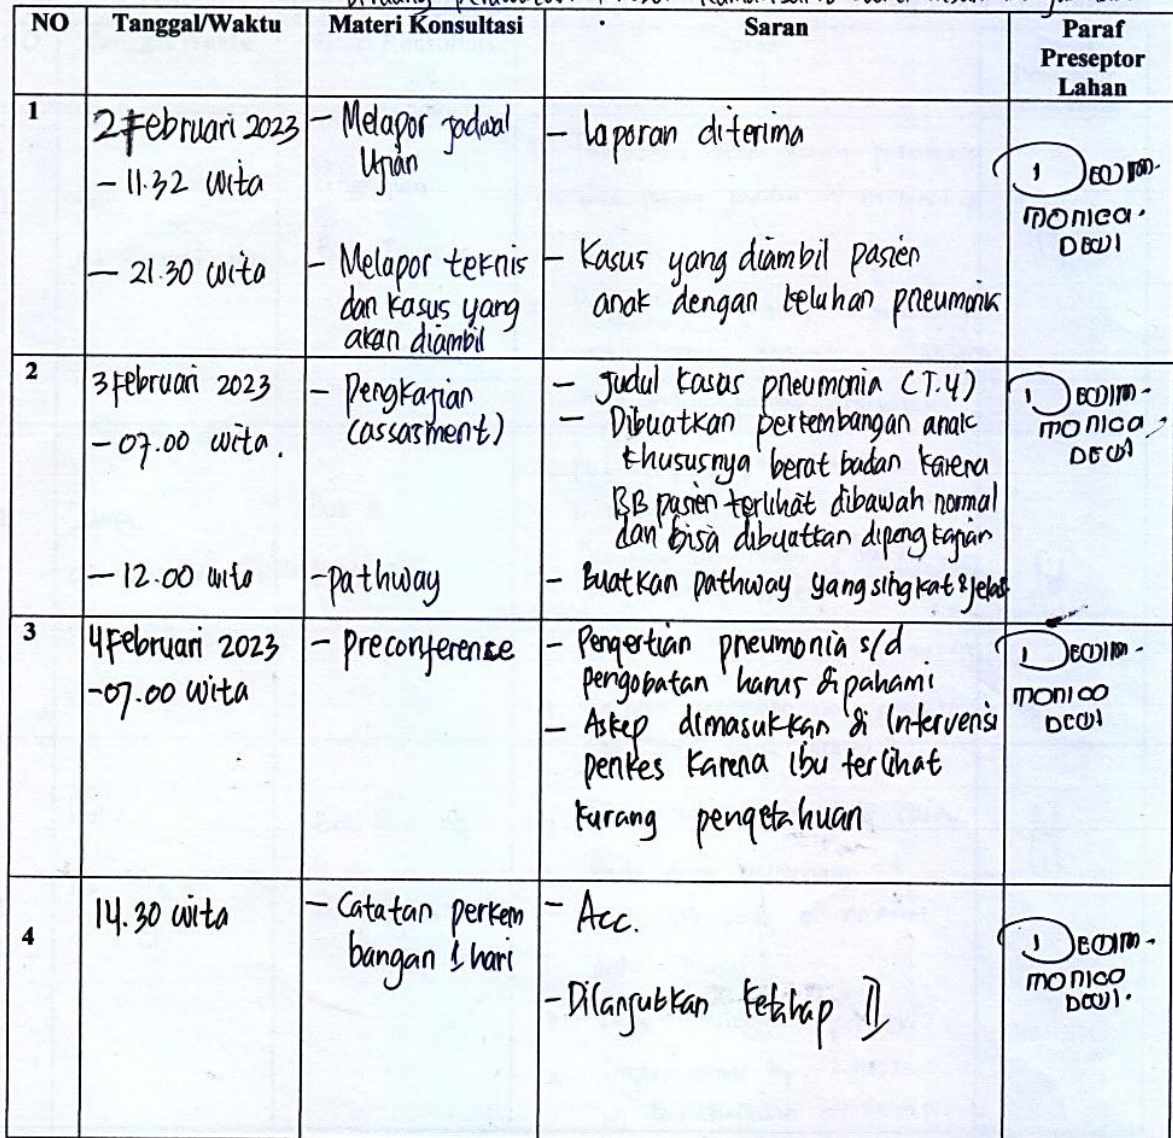 NO Tanggal/Waktu Materi Konsultasi Saran Paraf
Preseptor
Lahan
1
2 Februari 2023
- 11.32 wita
- Melapor jadwal
Ujian
- Laporan diterima
monica.
DEWI
- 21.30 wita
- Melapor teknis
dan kasus yang
akan diambil
- Kasus yang diambil pasien
anak dengan keluhan pneumonia
2
3 Februari 2023
- 07.00 wita.
- Pengkajian
(assasment)
- Judul kasus pneumonia (T.4)
- Dibuatkan pertembangan anak
khususnya berat badan karena
BB pasien terlihat dibawah normal
dan bisa dibuatkan dipengkajian
monica
DEWI
- 12.00 wita
- pathway
- Buatkan pathway yang singkat & jelas
3
4 Februari 2023
- 07.00 wita
- Preconferense
- Pengertian pneumonia s/d
pengobatan harus dipahami
- Askep dimasukkan di Intervensi
penkes karena ibu terlihat
kurang pengetahuan
monica
DEWI
4
14.30 wita
- Catatan perkem
bangan 1 hari
- Acc.
- Dilanjutkan ketahap II
monica
DEWI.